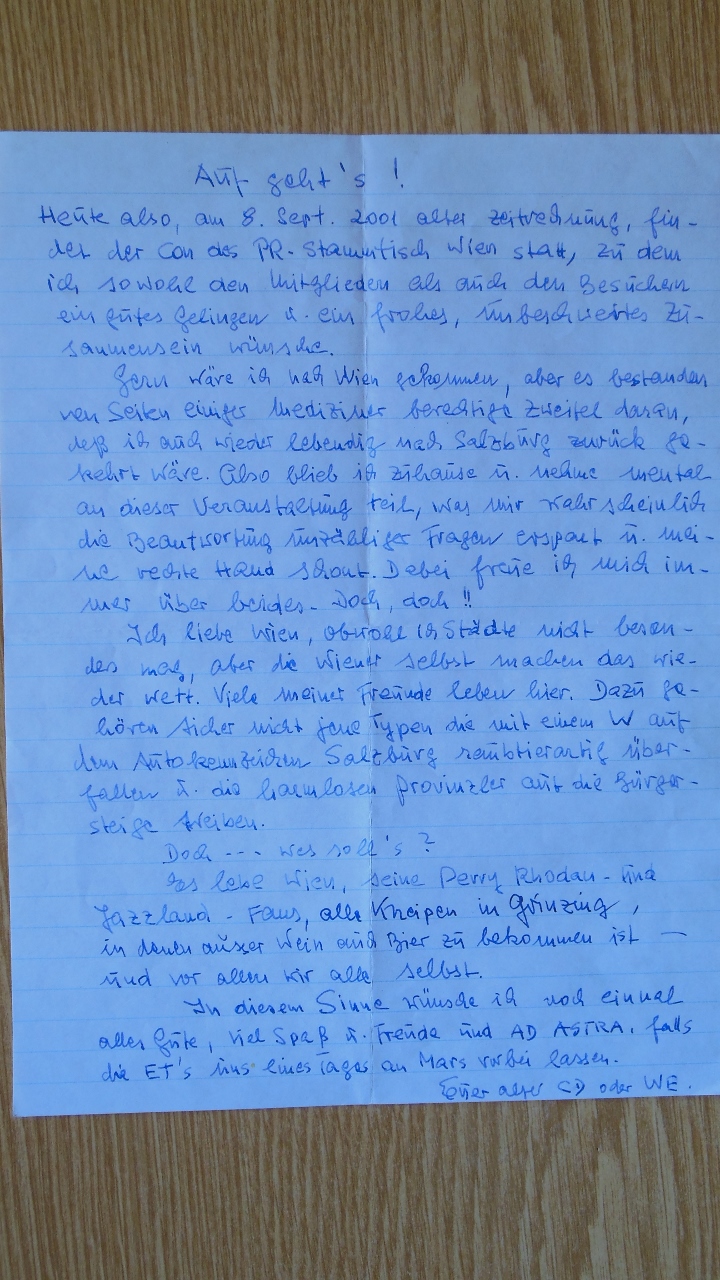 Auf geht's !
Heute also, am 8. Sept. 2001 alter Zeitrechnung, fin-
det der Con des PR-Stammtisch Wien statt, zu dem
ich sowohl den Mitgliedern als auch den Besuchern
ein gutes Gelingen u. ein frohes, unbeschwertes Zu-
sammensein wünsche.
Gern wäre ich nach Wien gekommen, aber es bestanden
von Seiten einiger Mediziner berechtigte Zweifel daran,
daß ich auch wieder lebendig nach Salzburg zurück ge-
kehrt wäre. Also blieb ich zuhause u. nehme mental
an dieser Veranstaltung teil, was mir wahrscheinlich
die Beantwortung unzähliger Fragen erspart u. mei-
ne rechte Hand schont. Dabei freue ich mich im-
mer über beides - Doch, doch !!
Ich liebe Wien, obwohl ich Städte nicht beson-
ders mag, aber die Wiener selbst machen das wie-
der wett. Viele meiner Freunde leben hier. Dazu ge-
hören sicher nicht jene Typen die mit einem W auf
dem Autokennzeichen Salzburg raubtierartig über-
fallen u. die harmlosen Provinzler auf die Bürger-
steige treiben.
Doch --- was soll's ?
Es lebe Wien, seine Perry Rhodan - und
Jazzland - Fans, alle Kneipen in Grinzing,
in denen ausser Wein auch Bier zu bekommen ist -
und vor allem wir alle selbst.
In diesem Sinne wünsche ich noch einmal
alles Gute, viel Spaß u. Freude und AD ASTRA, falls
die ET's uns eines Tages an Mars vorbei lassen.
Euer alter CD oder WE.